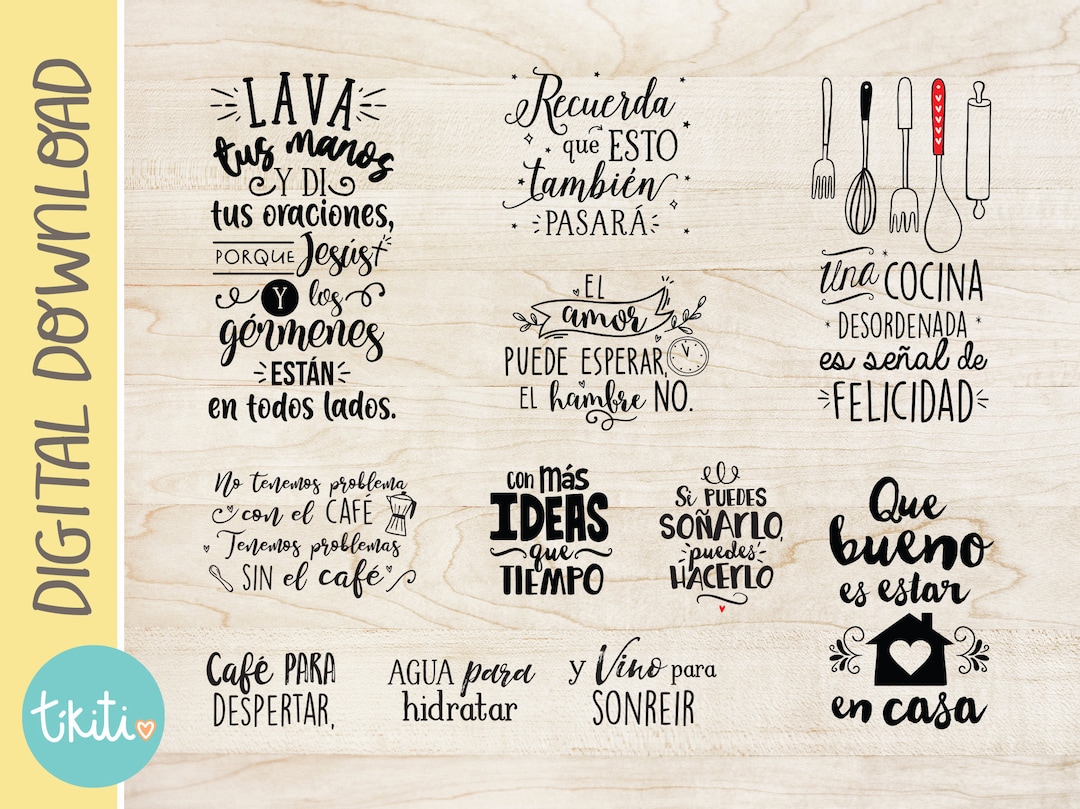 DIGITAL DOWNLOAD
tikiti
LAVA
tus manos
Y DI
tus oraciones,
PORQUE Jesús
Y los
gérmenes
ESTÁN
en todos lados.
Recuerda
que ESTO
también
PASARÁ
EL
amor
PUEDE ESPERAR,
EL hambre NO.
Una COCINA
DESORDENADA
es señal de
FELICIDAD
No tenemos problema
con el CAFÉ
Tenemos problemas
SIN el café
con más
IDEAS
que
TIEMPO
Si PUEDES
SOÑARLO,
puedes
HACERLO
Que
bueno
es estar
en casa
Café PARA
DESPERTAR,
AGUA para
hidratar
y Vino para
SONREIR